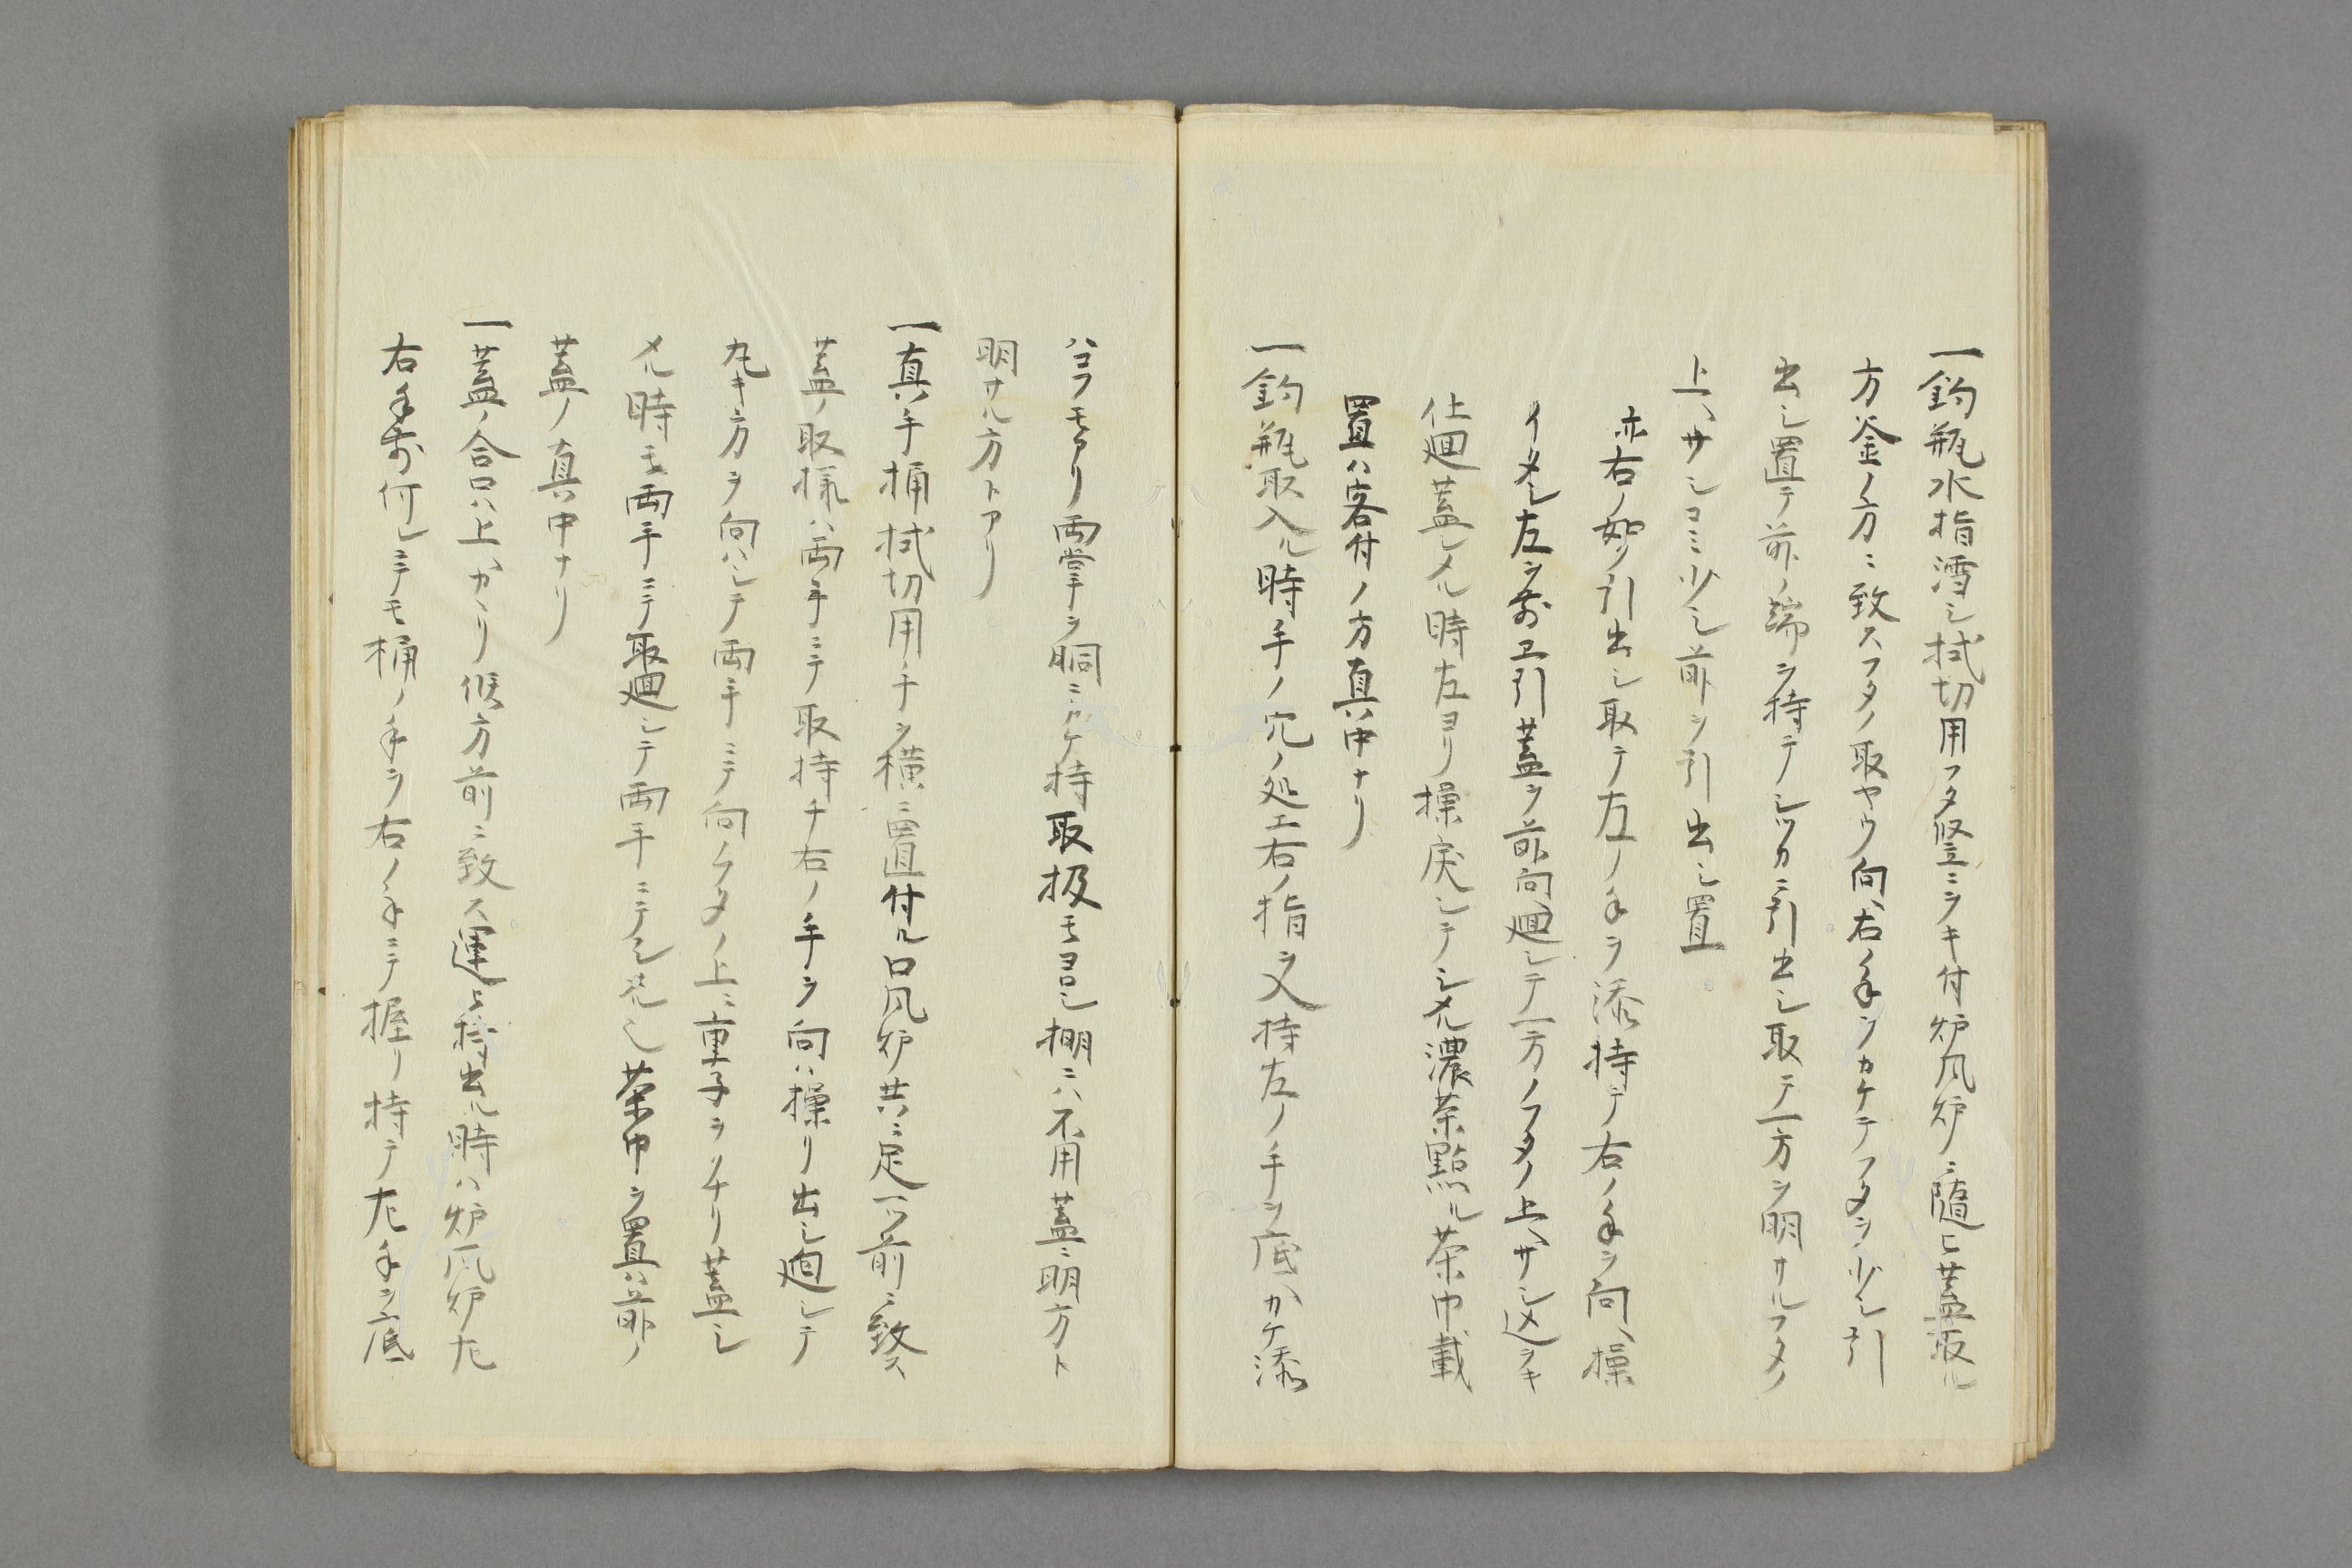 一釣瓶水指濡シ拭切用フタ竪ニシキ付炉風炉ニ随ヒ蓋取ル
方釜ノ方ニ致スフタノ取ヤウ向ヘ右ノ手ヲカケテフタヲ少シ引
出シ置テ前ノ端ヲ持テシツカニ引出シ取テ一方ヲ明サルフタノ
上ヘサシコミ少シ前ヲ引出シ置
亦右ノ如ク引出シ取テ左ノ手ヲ添持テ右ノ手ヲ向ヘ操
イタシ左ヲ前エ引蓋ヲ前向廻シテ一方ノフタノ上ヘサシ込ヲキ
仕廻蓋シメル時左ヨリ操戻シテシメル濃茶點ル茶巾載
置ハ客付ノ方真中ナリ
一釣瓶取入ル時手ノ穴ノ処エ右ノ指ヲ入持左ノ手ヲ底カケ添
ハコフモアリ両掌ヲ胴ニカケ持取扱モヨロシ棚ニハ不用蓋ニ明方ト
明サル方トアリ
一真手桶拭切用手ヲ横ニ置付ル口風炉共ニ足一ツ前ニ致ス
蓋ノ取様ハ両手ニテ取持チ右ノ手ヲ向ヘ操リ出シ廻シテ
丸キ方ヲ向ハシテ両手ニテ向ノフタノ上ニ重子ヲクナリ蓋シ
メル時モ両手ニテ取廻シテ両手ニテシ茶巾ヲ置ハ前ノ
蓋ノ真中ナリ
一蓋ノ合口ハ上カヽリ候方前ニ致ス運ヒ持出ル時ハ炉風炉左
右手前何レニテモ桶ノ手ヲ右ノ手ニテ握リ持テ左手ヲ底